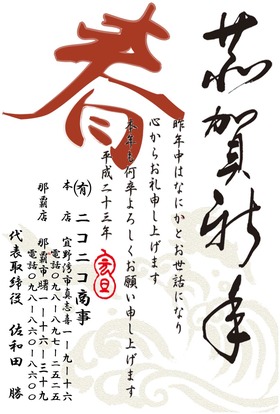 恭賀新年
春
昨年中はなにかとお世話になり
心からお礼申し上げます
本年も何卒よろしくお願い申し上げます
平成二十三年
元旦
㈲ニコニコ商事
本店 宜野湾市真志喜一ー九ー十六
電話〇九八ー八九七ー二五二五
那覇店 那覇市曙
電話〇九八ー八六〇
代表取締役 佐和田 勝